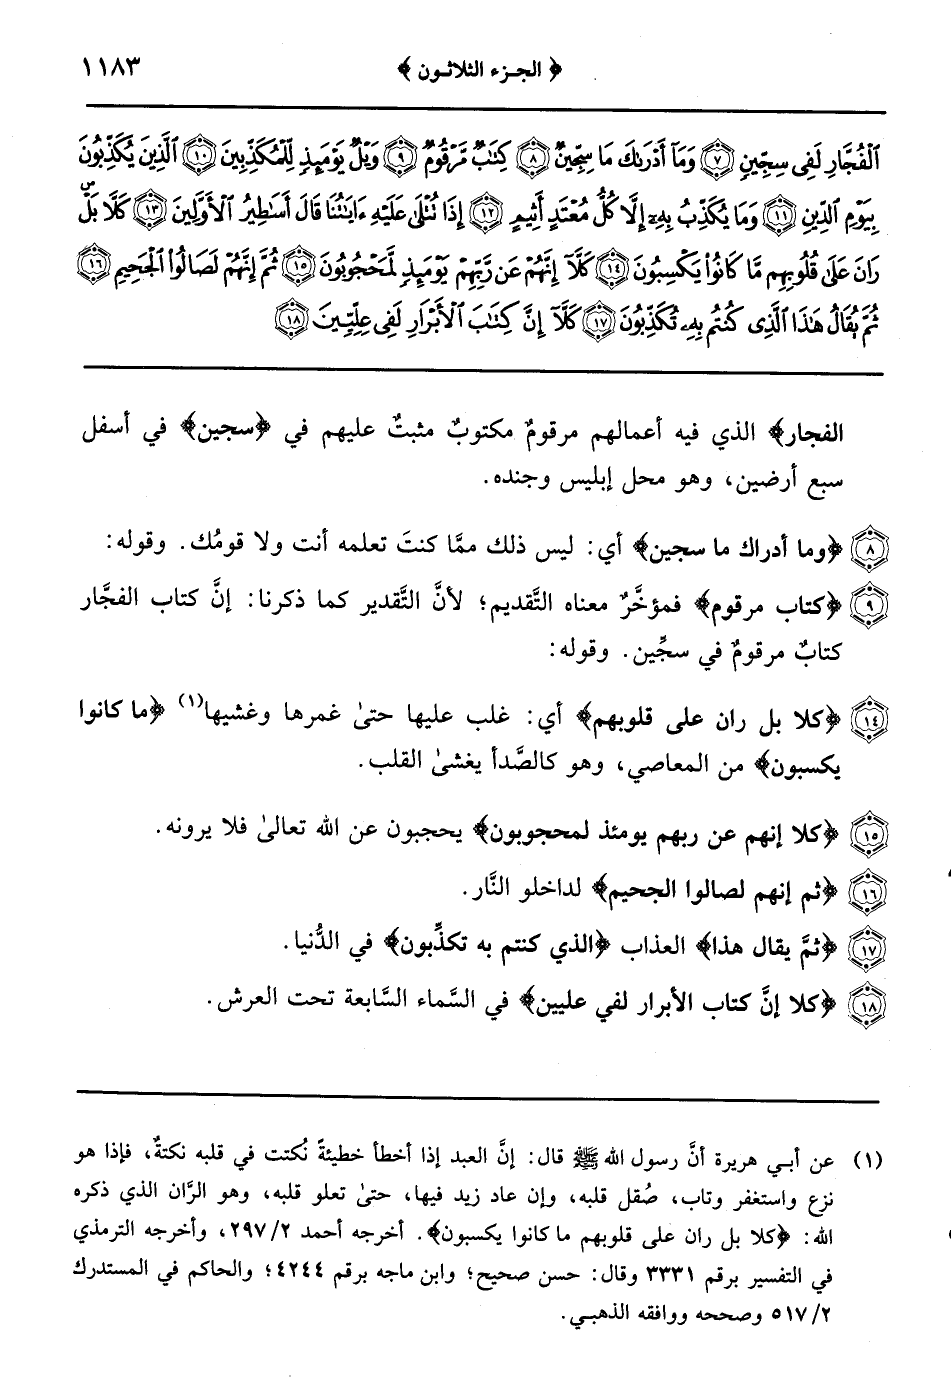 ﴿ الجـزء الثلاثـون ﴾ ١١٨٣
ٱلْفُجَّارِ لَفِى سِجِّينٍ ۝٧ وَمَآ أَدْرَىٰكَ مَا سِجِّينٌ ۝٨ كِتَٰبٌ مَّرْقُومٌ ۝٩ وَيْلٌ يَوْمَئِذٍ لِّلْمُكَذِّبِينَ ۝١٠ ٱلَّذِينَ يُكَذِّبُونَ
بِيَوْمِ ٱلدِّينِ ۝١١ وَمَا يُكَذِّبُ بِهِۦٓ إِلَّا كُلُّ مُعْتَدٍ أَثِيمٍ ۝١٢ إِذَا تُتْلَىٰ عَلَيْهِ ءَايَٰتُنَا قَالَ أَسَٰطِيرُ ٱلْأَوَّلِينَ ۝١٣ كَلَّا بَلْ ۜ
رَانَ عَلَىٰ قُلُوبِهِم مَّا كَانُوا۟ يَكْسِبُونَ ۝١٤ كَلَّآ إِنَّهُمْ عَن رَّبِّهِمْ يَوْمَئِذٍ لَّمَحْجُوبُونَ ۝١٥ ثُمَّ إِنَّهُمْ لَصَالُوا۟ ٱلْجَحِيمِ ۝١٦
ثُمَّ يُقَالُ هَٰذَا ٱلَّذِى كُنتُم بِهِۦ تُكَذِّبُونَ ۝١٧ كَلَّآ إِنَّ كِتَٰبَ ٱلْأَبْرَارِ لَفِى عِلِّيِّينَ ۝١٨
الفجار﴾ الذي فيه أعمالهم مرقومٌ مكتوبٌ مثبتٌ عليهم في ﴿سجين﴾ في أسفل
سبع أرضين، وهو محل إبليس وجنده.
٨ ﴿وما أدراك ما سجين﴾ أي: ليس ذلك ممَّا كنتَ تعلمه أنت ولا قومُك. وقوله:
٩ ﴿كتاب مرقوم﴾ فمؤخَّرٌ معناه التَّقديم؛ لأنَّ التَّقدير كما ذكرنا: إنَّ كتاب الفجَّار
كتابٌ مرقومٌ في سجِّين. وقوله:
١٤ ﴿كلا بل ران على قلوبهم﴾ أي: غلب عليها حتىٰ غمرها وغشيها(١) ﴿ما كانوا
يكسبون﴾ من المعاصي، وهو كالصَّدأ يغشىٰ القلب.
١٥ ﴿كلا إنهم عن ربهم يومئذ لمحجوبون﴾ يحجبون عن الله تعالىٰ فلا يرونه.
١٦ ﴿ثم إنهم لصالوا الجحيم﴾ لداخلو النَّار.
١٧ ﴿ثمَّ يقال هذا﴾ العذاب ﴿الذي كنتم به تكذِّبون﴾ في الدُّنيا.
١٨ ﴿كلا إنَّ كتاب الأبرار لفي عليين﴾ في السَّماء السَّابعة تحت العرش.
(١) عن أبـي هريرة أنَّ رسول الله ﷺ قال: إنَّ العبد إذا أخطأ خطيئةً نُكتت في قلبه نكتةٌ، فإذا هو
نزع واستغفر وتاب، صُقل قلبه، وإن عاد زيد فيها، حتىٰ تعلو قلبه، وهو الرَّان الذي ذكره
الله: ﴿كلا بل ران على قلوبهم ما كانوا يكسبون﴾. أخرجه أحمد ٢٩٧/٢، وأخرجه الترمذي
في التفسير برقم ٣٣٣١ وقال: حسن صحيح؛ وابن ماجه برقم ٤٢٤٤؛ والحاكم في المستدرك
٥١٧/٢ وصححه ووافقه الذهبـي.